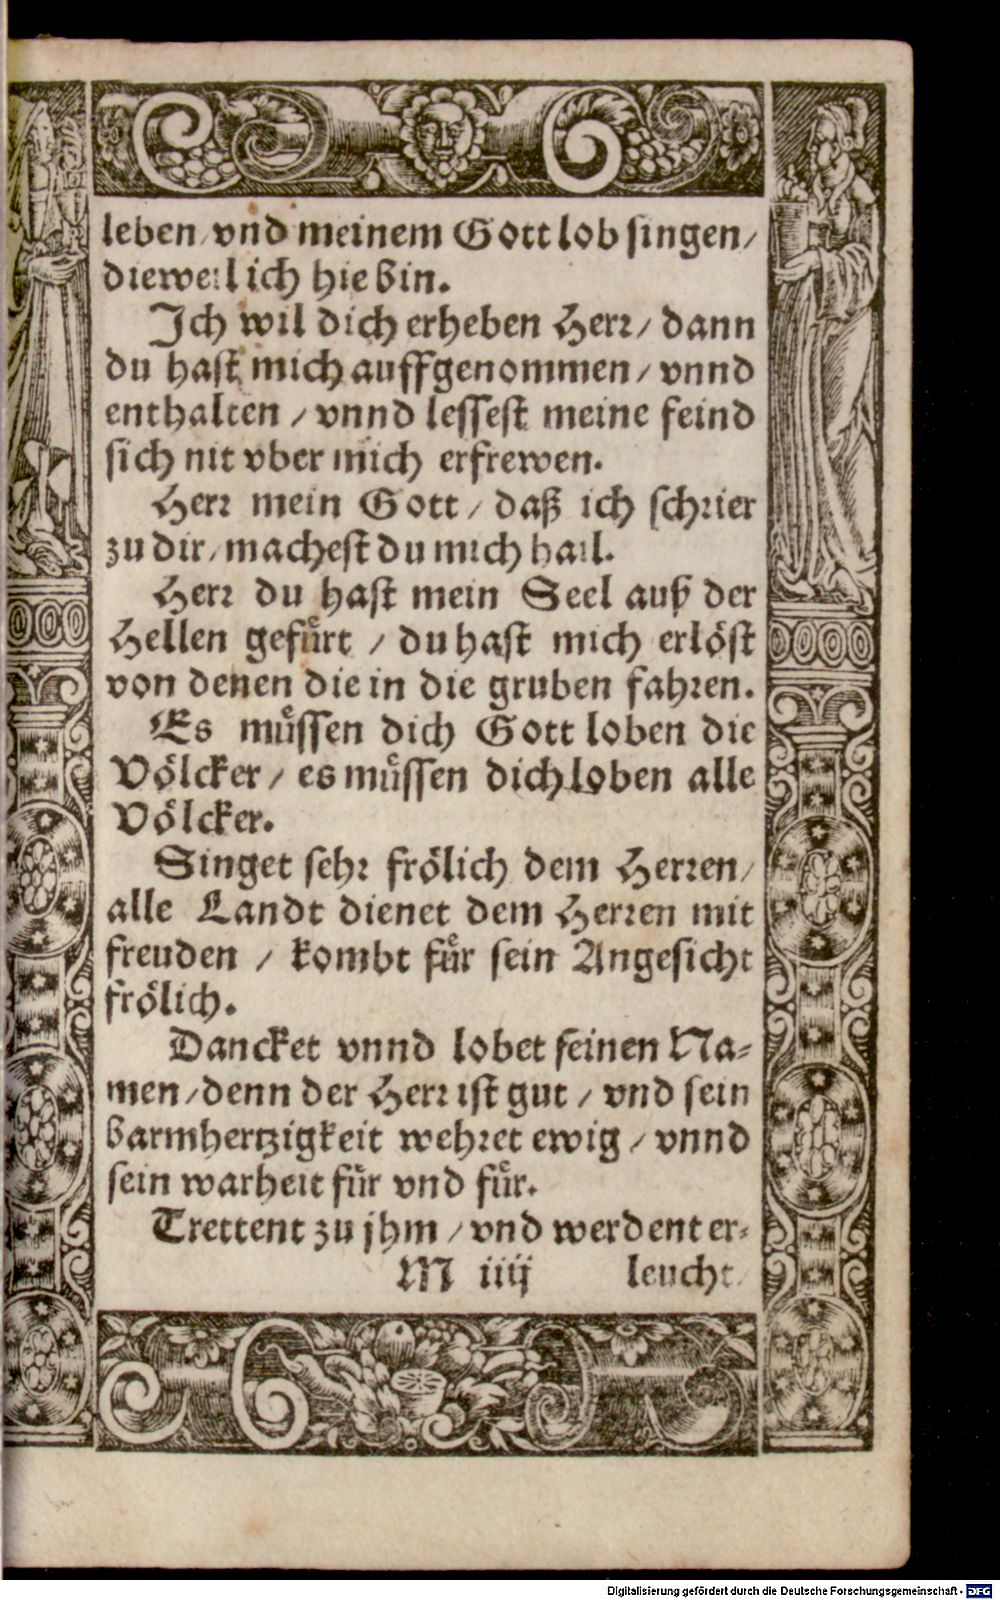 leben/ vnd meinem Gott lob singen/
dieweil ich hie bin.
Ich wil dich erheben Herr/ dann
du hast mich auffgenommen/ vnnd
enthalten/ vnnd lessest meine feind
sich nit vber mich erfrewen.
Herr mein Gott/ daß ich schrier
zu dir/ machest du mich hail.
Herr du hast mein Seel auß der
Hellen gefuͤrt/ du hast mich erloͤst
von denen die in die gruben fahren.
Es muͤssen dich Gott loben die
Voͤlcker/ es muͤssen dich loben alle
Voͤlcker.
Singet sehr froͤlich dem Herren/
alle Landt dienet dem Herren mit
freuden/ kombt fuͤr sein Angesicht
froͤlich.
Dancket vnnd lobet seinen Na-
men/ denn der Herr ist gut/ vnd sein
barmhertzigkeit wehret ewig/ vnnd
sein warheit fuͤr vnd fuͤr.
Trettent zu jhm/ vnd werdent er-
M iiij leucht/
Digitalisierung gefördert durch die Deutsche Forschungsgemeinschaft - DFG